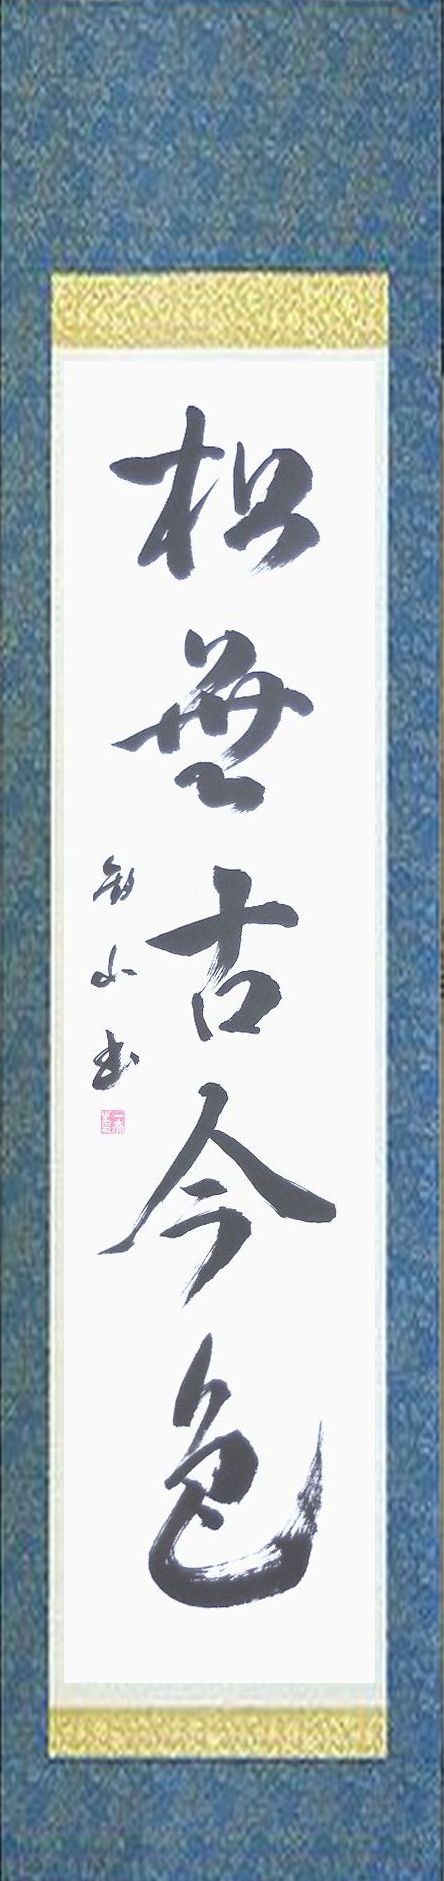 松無古今色
山書